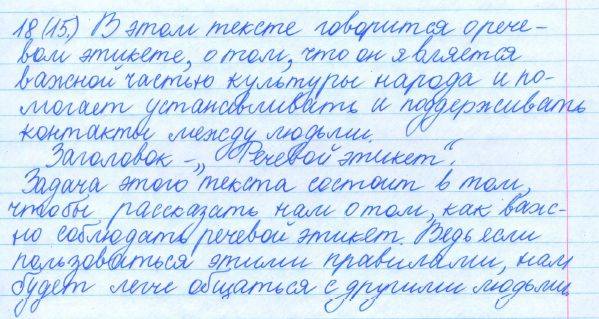 18 (15.) В этом тексте говорится о рече-
вом этикете, о том, что он является
важной частью культуры народа и по-
могает устанавливать и поддерживать
контакты между людьми.
Заголовок – „Речевой этикет“.
Задача этого текста состоит в том,
чтобы рассказать нам о том, как важ-
но соблюдать речевой этикет. Ведь если
пользоваться этими правилами, нам
будет легче общаться с другими людьми.